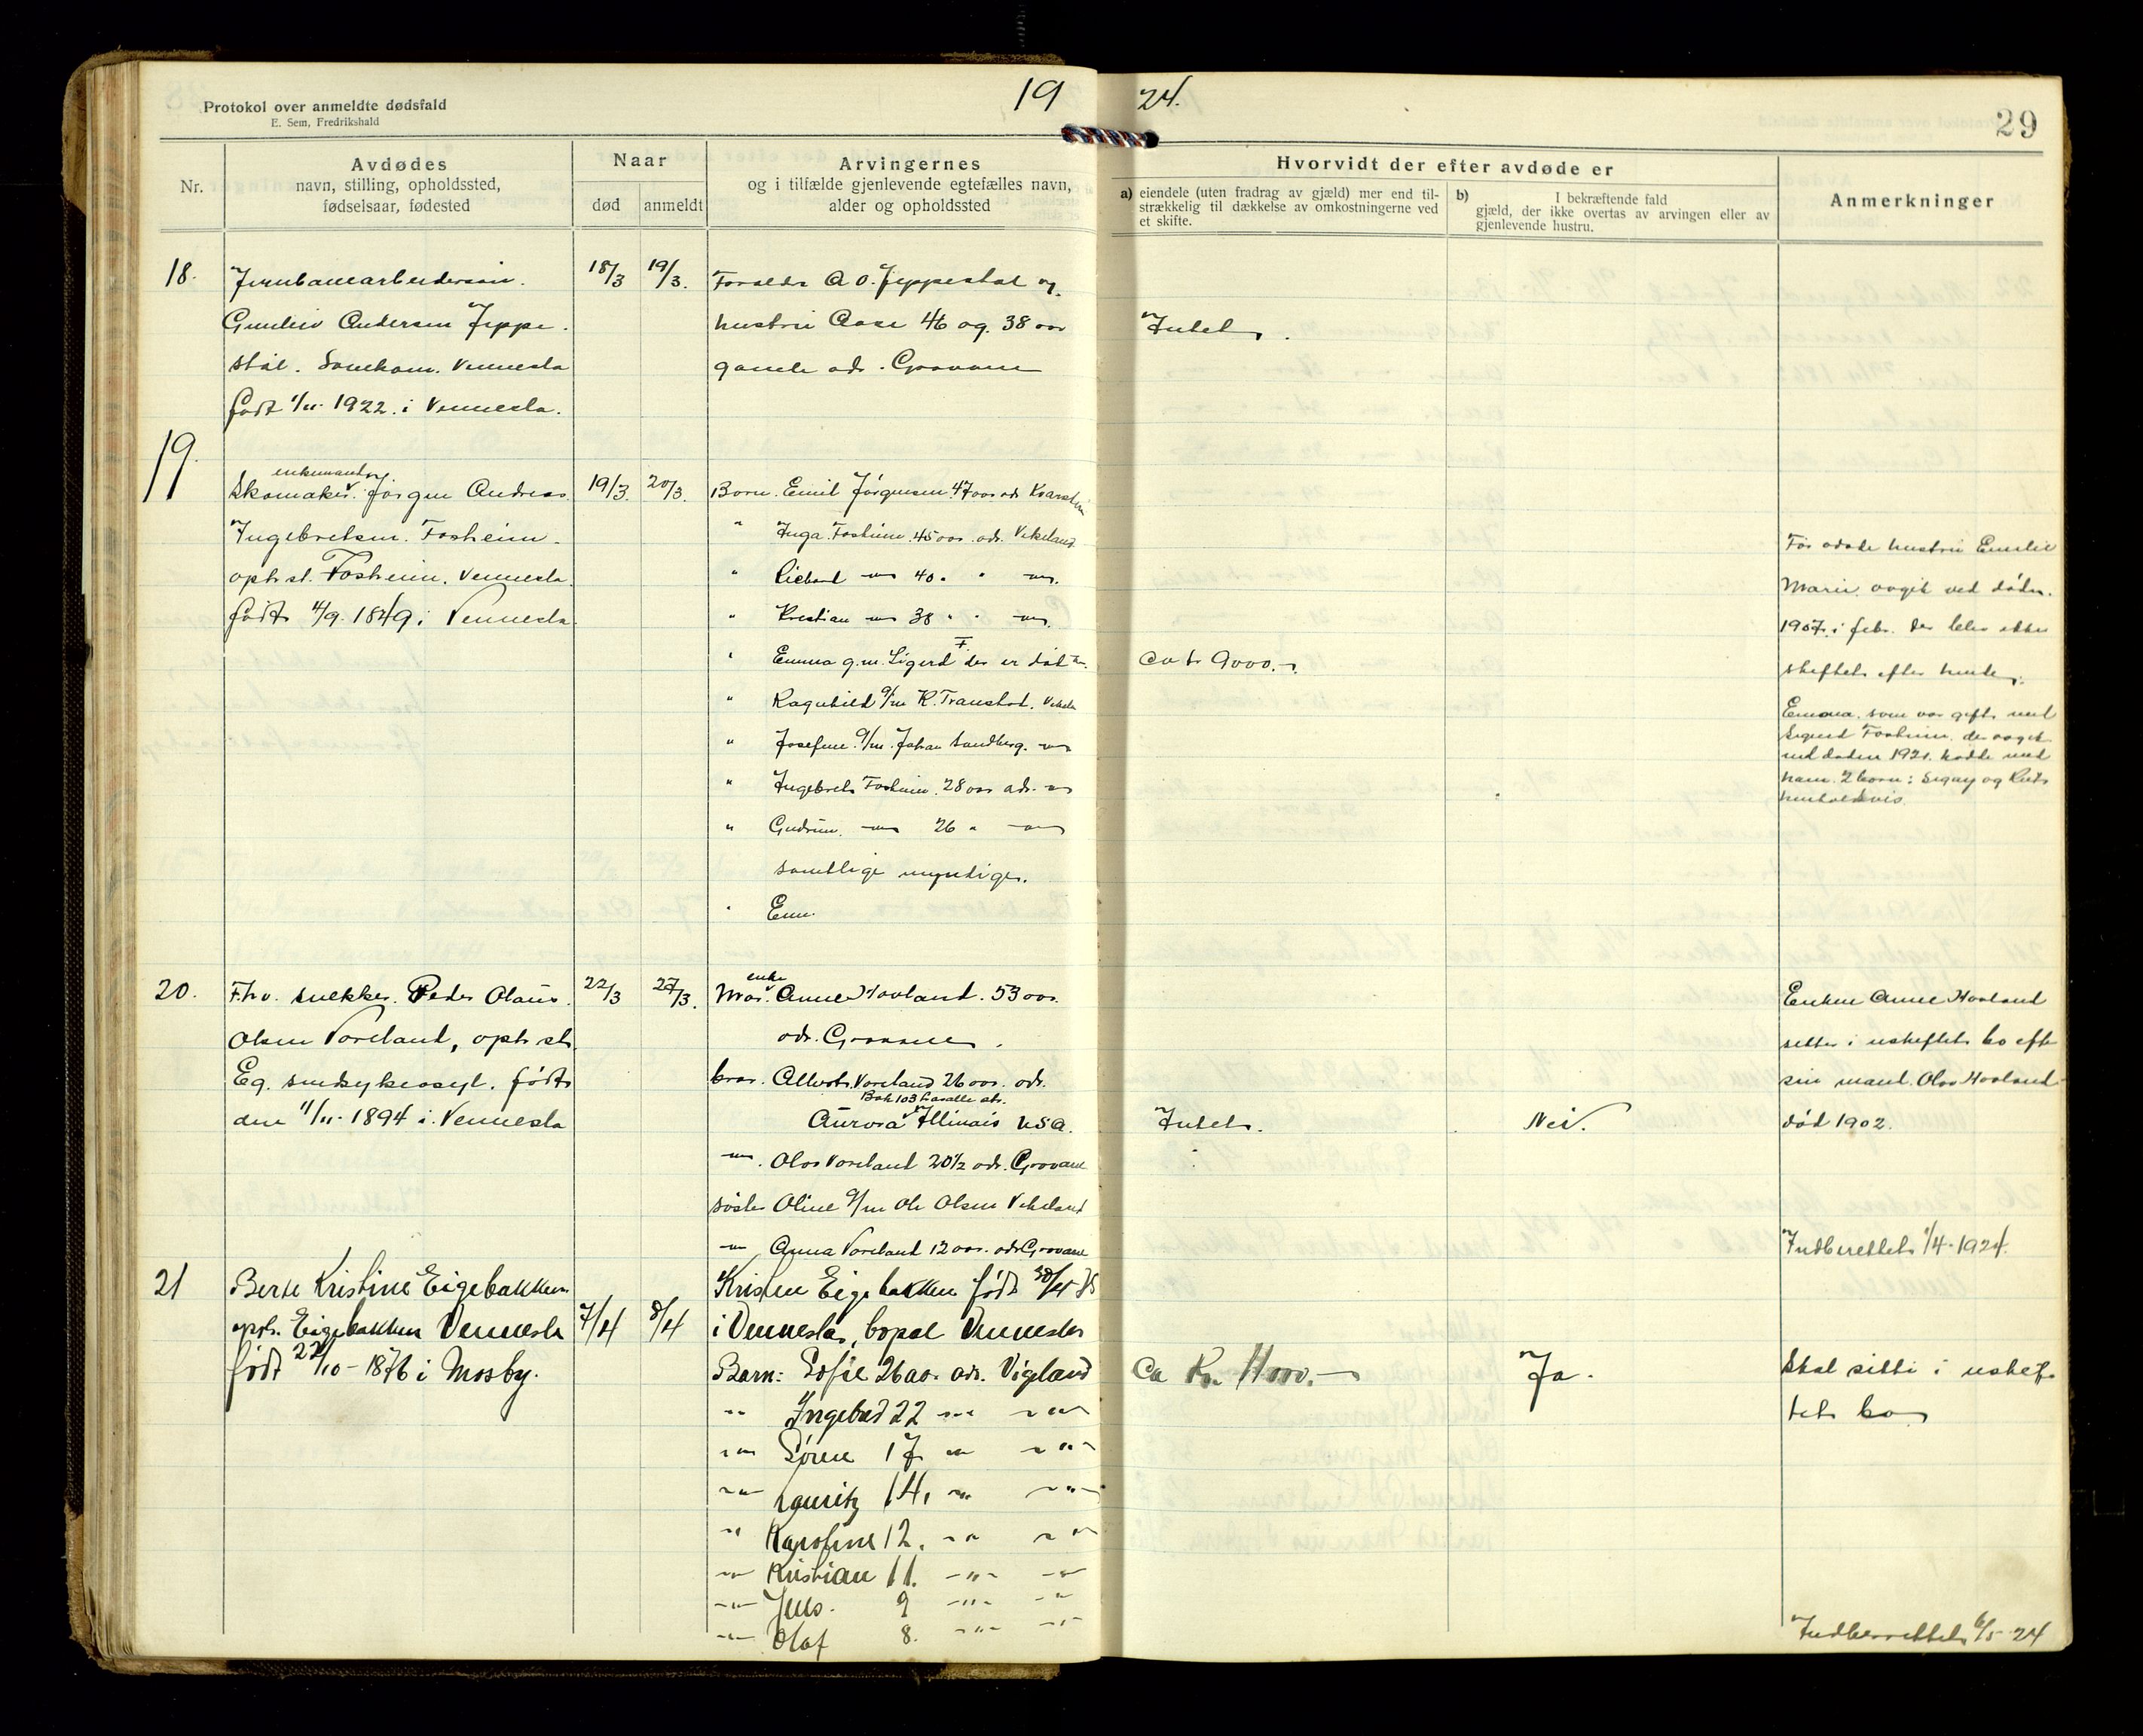 19 24.
29
Protokol over anmeldte dødsfald
E. Sem, Fredrikshald
Nr.
Avdødes
navn, stilling, opholdssted,
fødselsaar, fødested
Naar
død
anmeldt
Arvingernes
og i tilfælde gjenlevende egtefælles navn,
alder og opholdssted
Hvorvidt der efter avdøde er
a) eiendele (uten fradrag av gjæld) mer end til-
strækkelig til dækkelse av omkostningerne ved
et skifte.
b) I bekræftende fald
gjæld, der ikke overtas av arvingen eller av
gjenlevende hustru.
Anmerkninger
18.
Jernbanearbeidersøn.
Gunleiv Andersen Jeppe
støl. Vennesla
født 1/11 1922 i Vennesla.
18/3
19/3.
Forældr A O. Jeppestøl og
hustru Aase 46 og 38 aar
gamle adr. Grovane
Intet.
19.
enkemand
Skomaker Jørgen Andreas
Ingebretsen Fosheim.
oph.st. Fosheim. Vennesla.
født 4/9 1849 i Vennesla.
19/3.
20/3.
Barn. Emil Jørgensen 47 aar adr Kvarstein
" Inga Fosheim 45 aar. adr. Vikeland
" Richard — 40 " " —
" Kristian — 38 " " —
" Emma g.m. Sigurd F. der er død
" Ragnhild g/m K. Transtøl.
" Josefine g/m. Johan Sundberg. —
" Ingebret Fosheim. 28 aar adr. —
" Gudrun — 26 " —
samtlige myndige.
" Em.
ca kr 9000.-
hustru Emilie
Marie avgik ved døden
1907 i febr. der blev ikke
skiftet efter hende.
Emma som var gift med
Sigurd Fosheim. der avgik
ved døden 1921. hadde med
ham 2 barn: Signy og Rut
20.
Fhv. snekker. Peder Olaus
Olsen Voreland, oph.st.
Eg. sindsykeasyl. født
den 11/11 1894 i Vennesla
22/3
27/3.
enke
Mor. Anne Hovland. 53 aar.
adr. Grovane.
bror. Albert Voreland 26 aar. adr.
Box 103 Lasalle str.
Aurora Illinois USA.
— Olav Voreland 20 1/2 adr. Grovane
søster Oline g/m Ole Olsen Vikeland
— Anna Voreland 12 aar. adr Grovane
Intet.
Nei.
Enken Anne Hovland
sitter i uskiftet bo efter
sin mand. Olav Hovland
død 1902.
Indberettet 1/4-1924.
21
Berte Kristine Eigebakken
opst. Eigebakken Vennesla
født 22/10 - 1876 i Mosby.
7/4
8/4
Kristen Eigebakken født 30/4
i Vennesla, bopæl Vennesla
Barn: Sofie 26 aar adr. Vigeland
" Ingebred 22 — —
" Søren 17 — —
" Lauritz 14. — —
" Karoline 12. — —
" Kristian 11. — —
" Jens. 9 — —
" Olaf 8. — —
Ca Kr. 11000.-
Ja.
Skal sitte i uskif-
tet bo
Indberettet 6/5 24